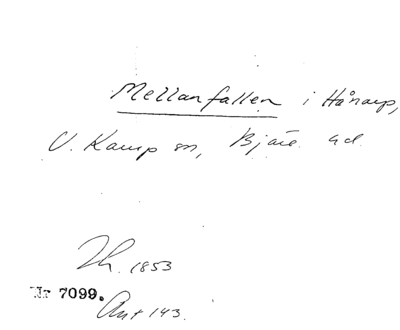 Mellanfallen i Hånarp,
V. Karup sn, Bjäre hd.
Lh. 1853
Nr 7099.
Avt 143.